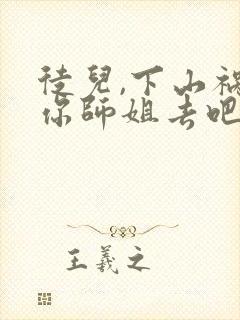 徒兒,下山禍
你師姐去吧
王羲之